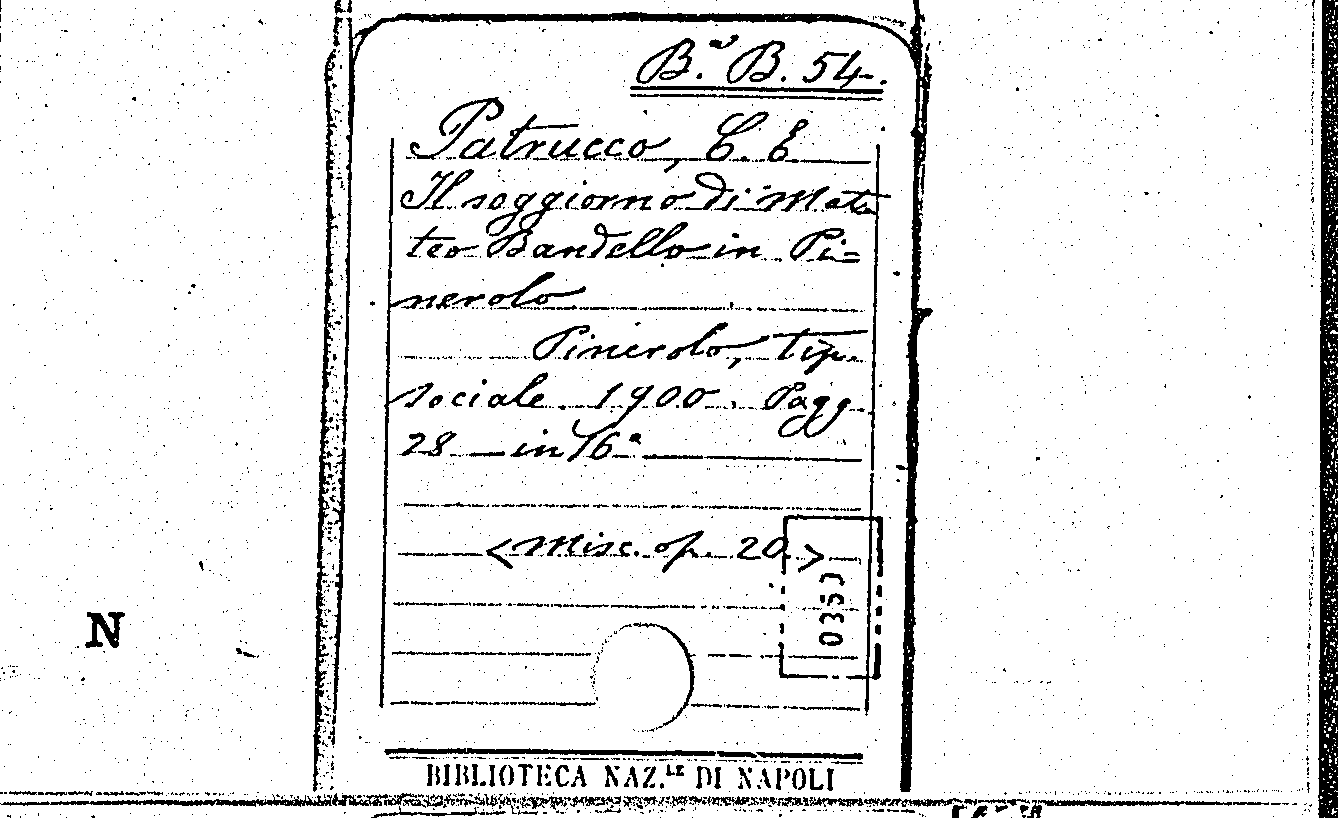 B.ª B. 54.
Patrucco, C. E
Il soggiorno di Mat
teo Bandello in Pi=
nerolo
Pinerolo, tip.
sociale. 1900. Pagg.
28 – in 16°
< Misc. op. 20. >
BIBLIOTECA NAZ.LE DI NAPOLI
N